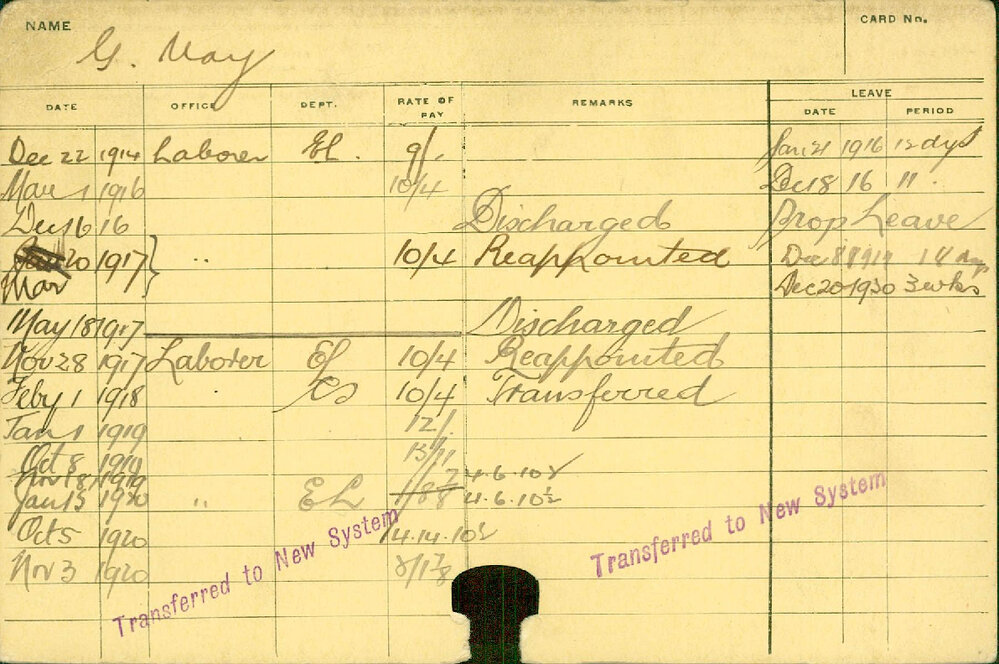 NAME
CARD No.
G. May
DATE OFFICE DEPT. RATE OF PAY REMARKS LEAVE
DATE PERIOD
Dec 22 1914 Laborer El. 9/. Jan 21 1916 12 dys
Mar 1 1916 10/4 Dec 18 16 11.
Dec 16 16 Discharged Prop Leave
20 1917 } " 10/4 Reappointed Dec 8 1919
Mar Dec 20 1930 3 wks
May 18 1917 Discharged
Nov 28 1917 Laborer El 10/4 Reappointed
Feby 1 1918 10/4 Transferred
Jan 1 1919 12/.
Oct 8 1919 13/11
Nov 18 1919 4.6.10½
Jan 13 1920 " EL 4.6.10½
Oct 5 1920 4.14.10½
Nov 3 1920
Transferred to New System
Transferred to New System